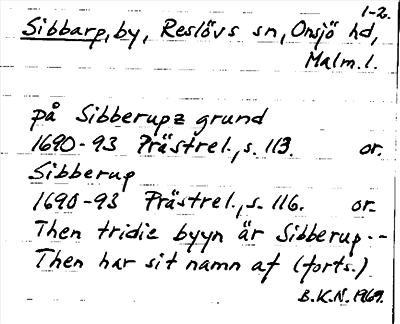 1-2.
Sibbarp, by, Reslövs sn, Onsjö hd,
Malm. l.
på Sibberupz grund
1690-93 Prästrel., s. 113. or.
Sibberup
1690-93 Prästrel., s. 116. or.
Then tridie byyn är Sibberup --
Then har sit namn af (forts.)
B.K.N. 1969.